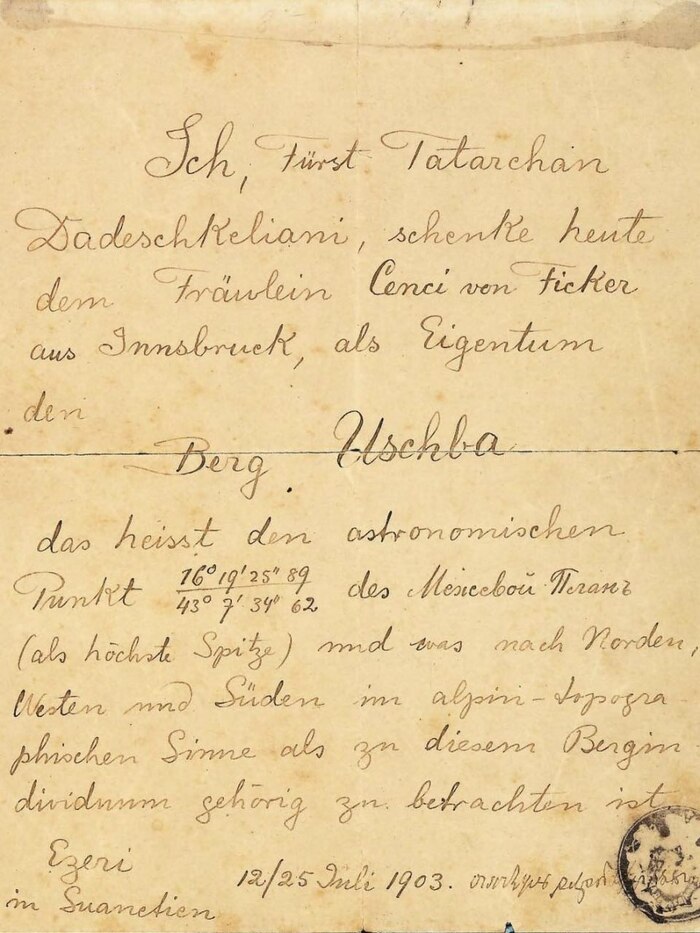 Ich, Fürst Tatarchan
Dadeschkeliani, schenke heute
dem Fräulein Cenci von Ficker
aus Innsbruck, als Eigentum
den
Berg Uschba
das heisst den astronomischen
Punkt 76° 19' 25" 89
43° 7' 34" 62 des Межевой Планъ
(als höchste Spitze) und was nach Norden,
Westen und Süden im alpin-topogra-
phischen Sinne als zu diesem Bergin
dividuum gehörig zu betrachten ist.
Ezeri
in Suanetien
12/25 Juli 1903.